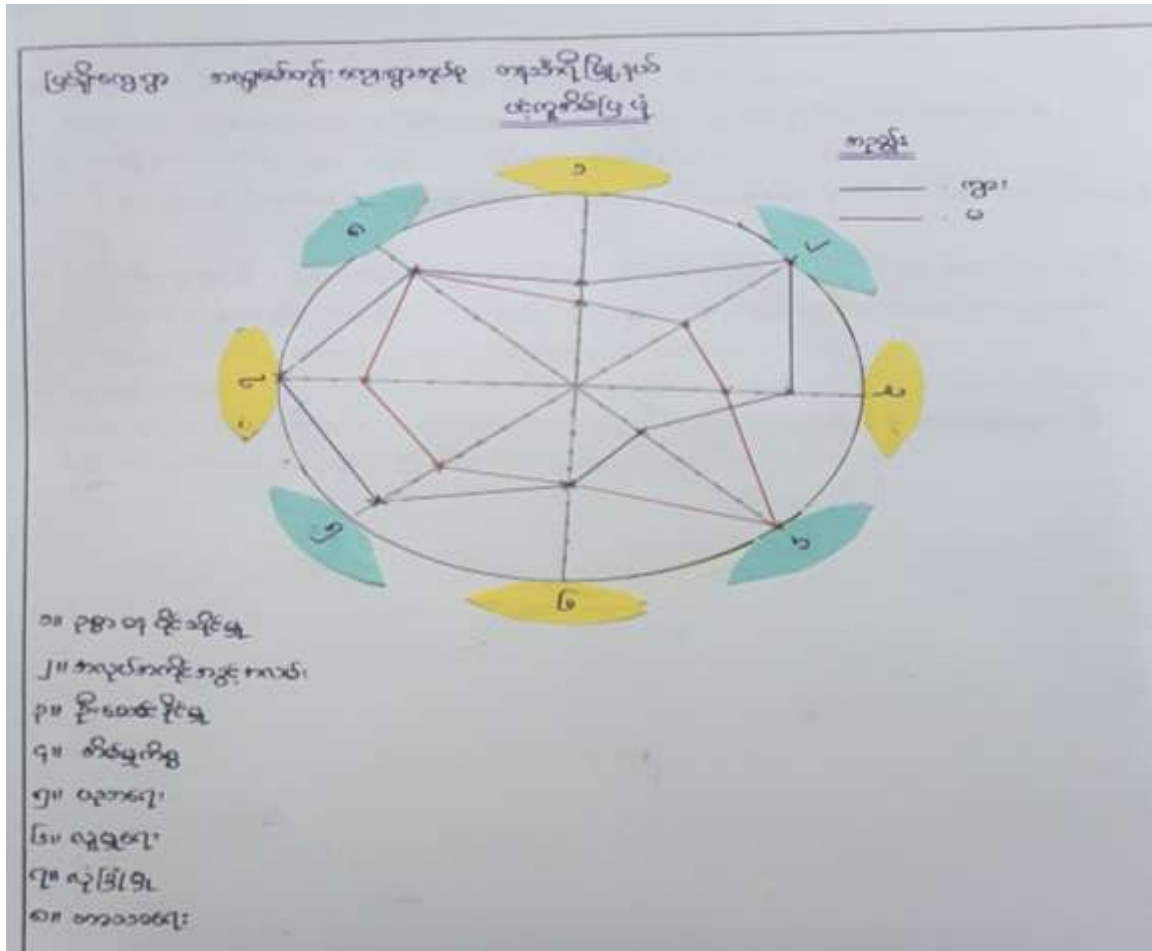 မြင်းရိုးကျေးရွာ အရှေ့မော်တုန်းကျေးရွာအုပ်စု တနင်္သာရီမြို့နယ်
ပင့်ကူအိမ်ပြပုံ
အညွှန်း
ကျား
မ
၁
၂
၃
၄
၆
၅
၁။ ဥစ္စာဓန ပိုင်ဆိုင်မှု
၂။ အလုပ်အကိုင်အခွင့်အလမ်း
၃။ ဦးဆောင်နိုင်မှု
၄။ အိမ်မှုကိစ္စ
၅။ ပညာရေး
၆။ လူမှုရေး
၇။ လုံခြုံမှု
၈။ ဘာသာရေး